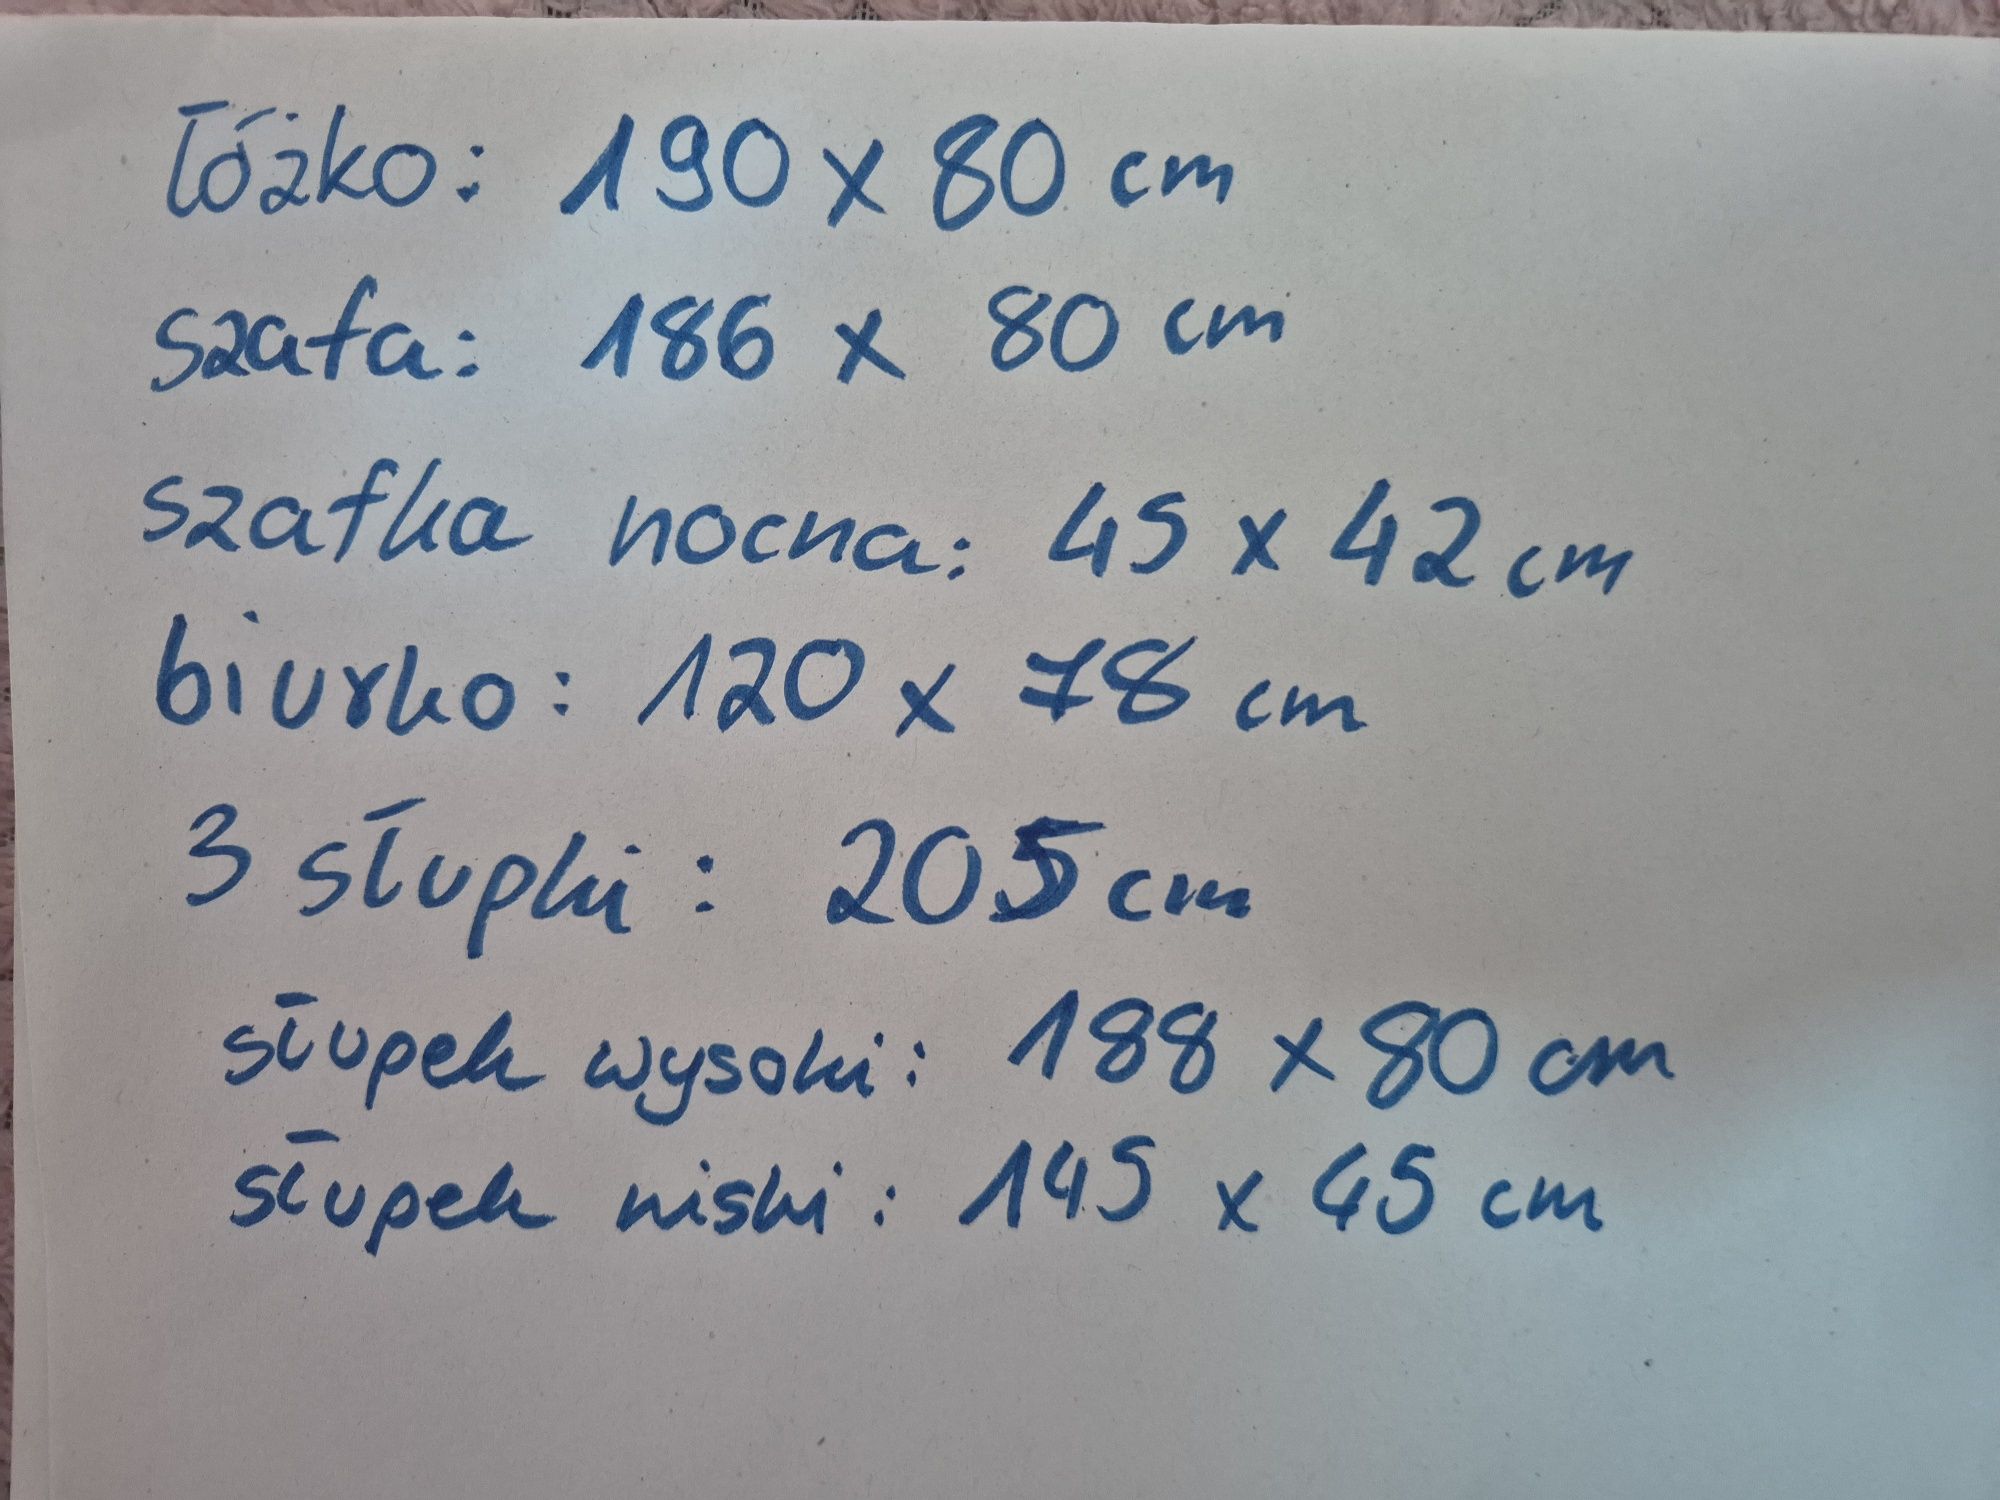 łóżko: 190 x 80 cm
szafa: 186 x 80 cm
szafka nocna: 45 x 42 cm
biurko: 120 x 78 cm
3 słupki: 205 cm
słupek wysoki: 188 x 80 cm
słupek niski: 145 x 45 cm